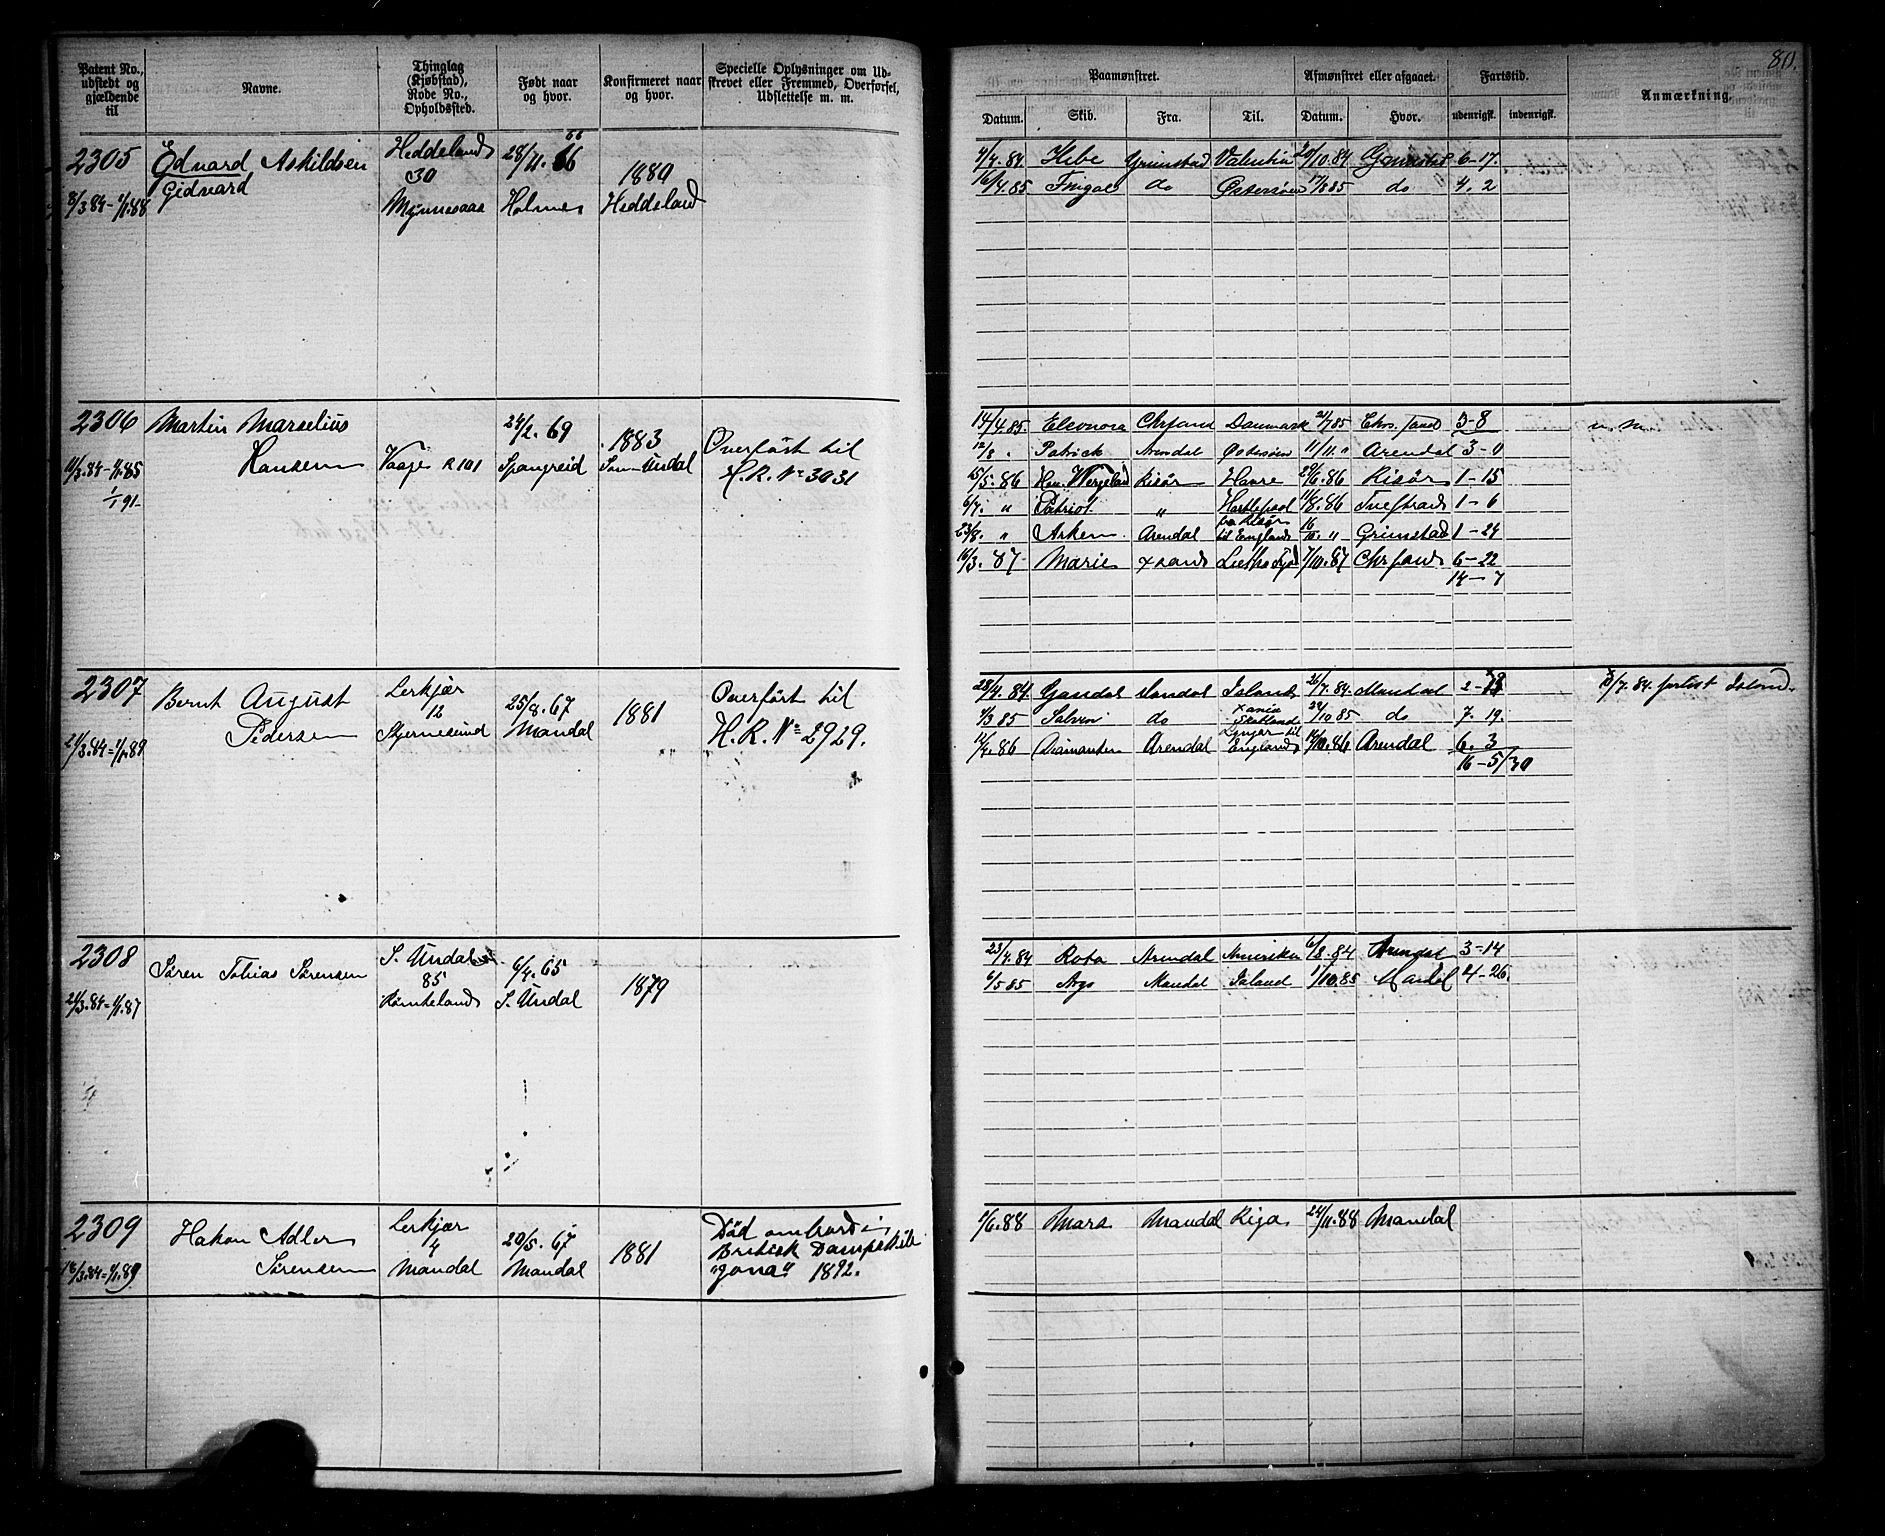 80.
Patent No., udstedt og gjældende til
Navne.
Thinglag (Kjøbstad), Rode No., Opholdssted.
Født naar og hvor.
Konfirmeret naar og hvor.
Specielle Oplysninger om Udskrevet eller Fremmed, Overførsel, Udslettelse m. m.
Paamønstret.
Afmønstret eller afgaaet.
Fartstid.
Anmærkning.
Datum. Skib. Fra. Til. Datum. Hvor. udenrigsk. indenrigsk.
2305 Edvard Askildsen Heddeland 28/11. 66
Gidvard 30 1880
8/3 84 - 1/1. 88 Holme Heddeland
4/4. 84 Hebe Grimstad 20/10. 84 6-17.
16/4. 85 Fingal do Østersøen 17/8 85 do 4. 2
2306 Martin Marselius 24/2. 69 1883 Overført til
Hansen Vaage R 101 Spangreid Søn Undal H. R. No 3031
11/3. 84 - 1/1. 85
1/1 91-
14/4. 85. Eleonora Chrsand Danmark 21/7. 85 Chrs.sand 3-8
12/8 Patrick Arendal Østersøen 11/11. " Arendal 3-0
25/5. 86 Hen. Wergeland Risør Havre 29/6. 86 Risør 1-15
6/7. " Patriot " Hartlepool 11/8. 86 Tvestrand 1-6
23/8. " Asken Arendal fra Risør til England 16/10. " Grimstad 1-24
16/3. 87 Marie xsand 7/10. 87 Chrsand 6-22
14-7
2307 Bernt August Lerkjær 25/8. 67 1881 Overført til
Pedersen 12 Mandal H. R. No 2929.
21/3. 84 - 1/1. 89 Skjernesund "
28/4. 84. Gandal Mandal Island 26/7. 84. Mandal
4/3 85 Salven do 24/10 85 do 7. 19.
12/4. 86 Diamanten Arendal Lyngør til England 14/10. 86 Arendal 6. 3
16-5/30
/7. 84. forlist Island.
2308 Søren Tobias Sørensen S. Undal 6/4. 65 1879
85 S. Undal
21/3. 84 - 1/1. 87
23/4. 84 Rota Arendal Amerika 6/8. 84 Arendal 3-14
6/5 85 Argo Mandal Island 1/10. 85 Mandal 4-26.
2309 Hakon Adler Lerkjær 20/5. 67 1881 Død ombord i
Sørensen 4 Mandal Mandal Britisk Dampskib
18/3. 84 - 1/1. 89 "Jona" 1892.
1/6. 88 Mars Mandal Riga 24/11. 88 Mandal